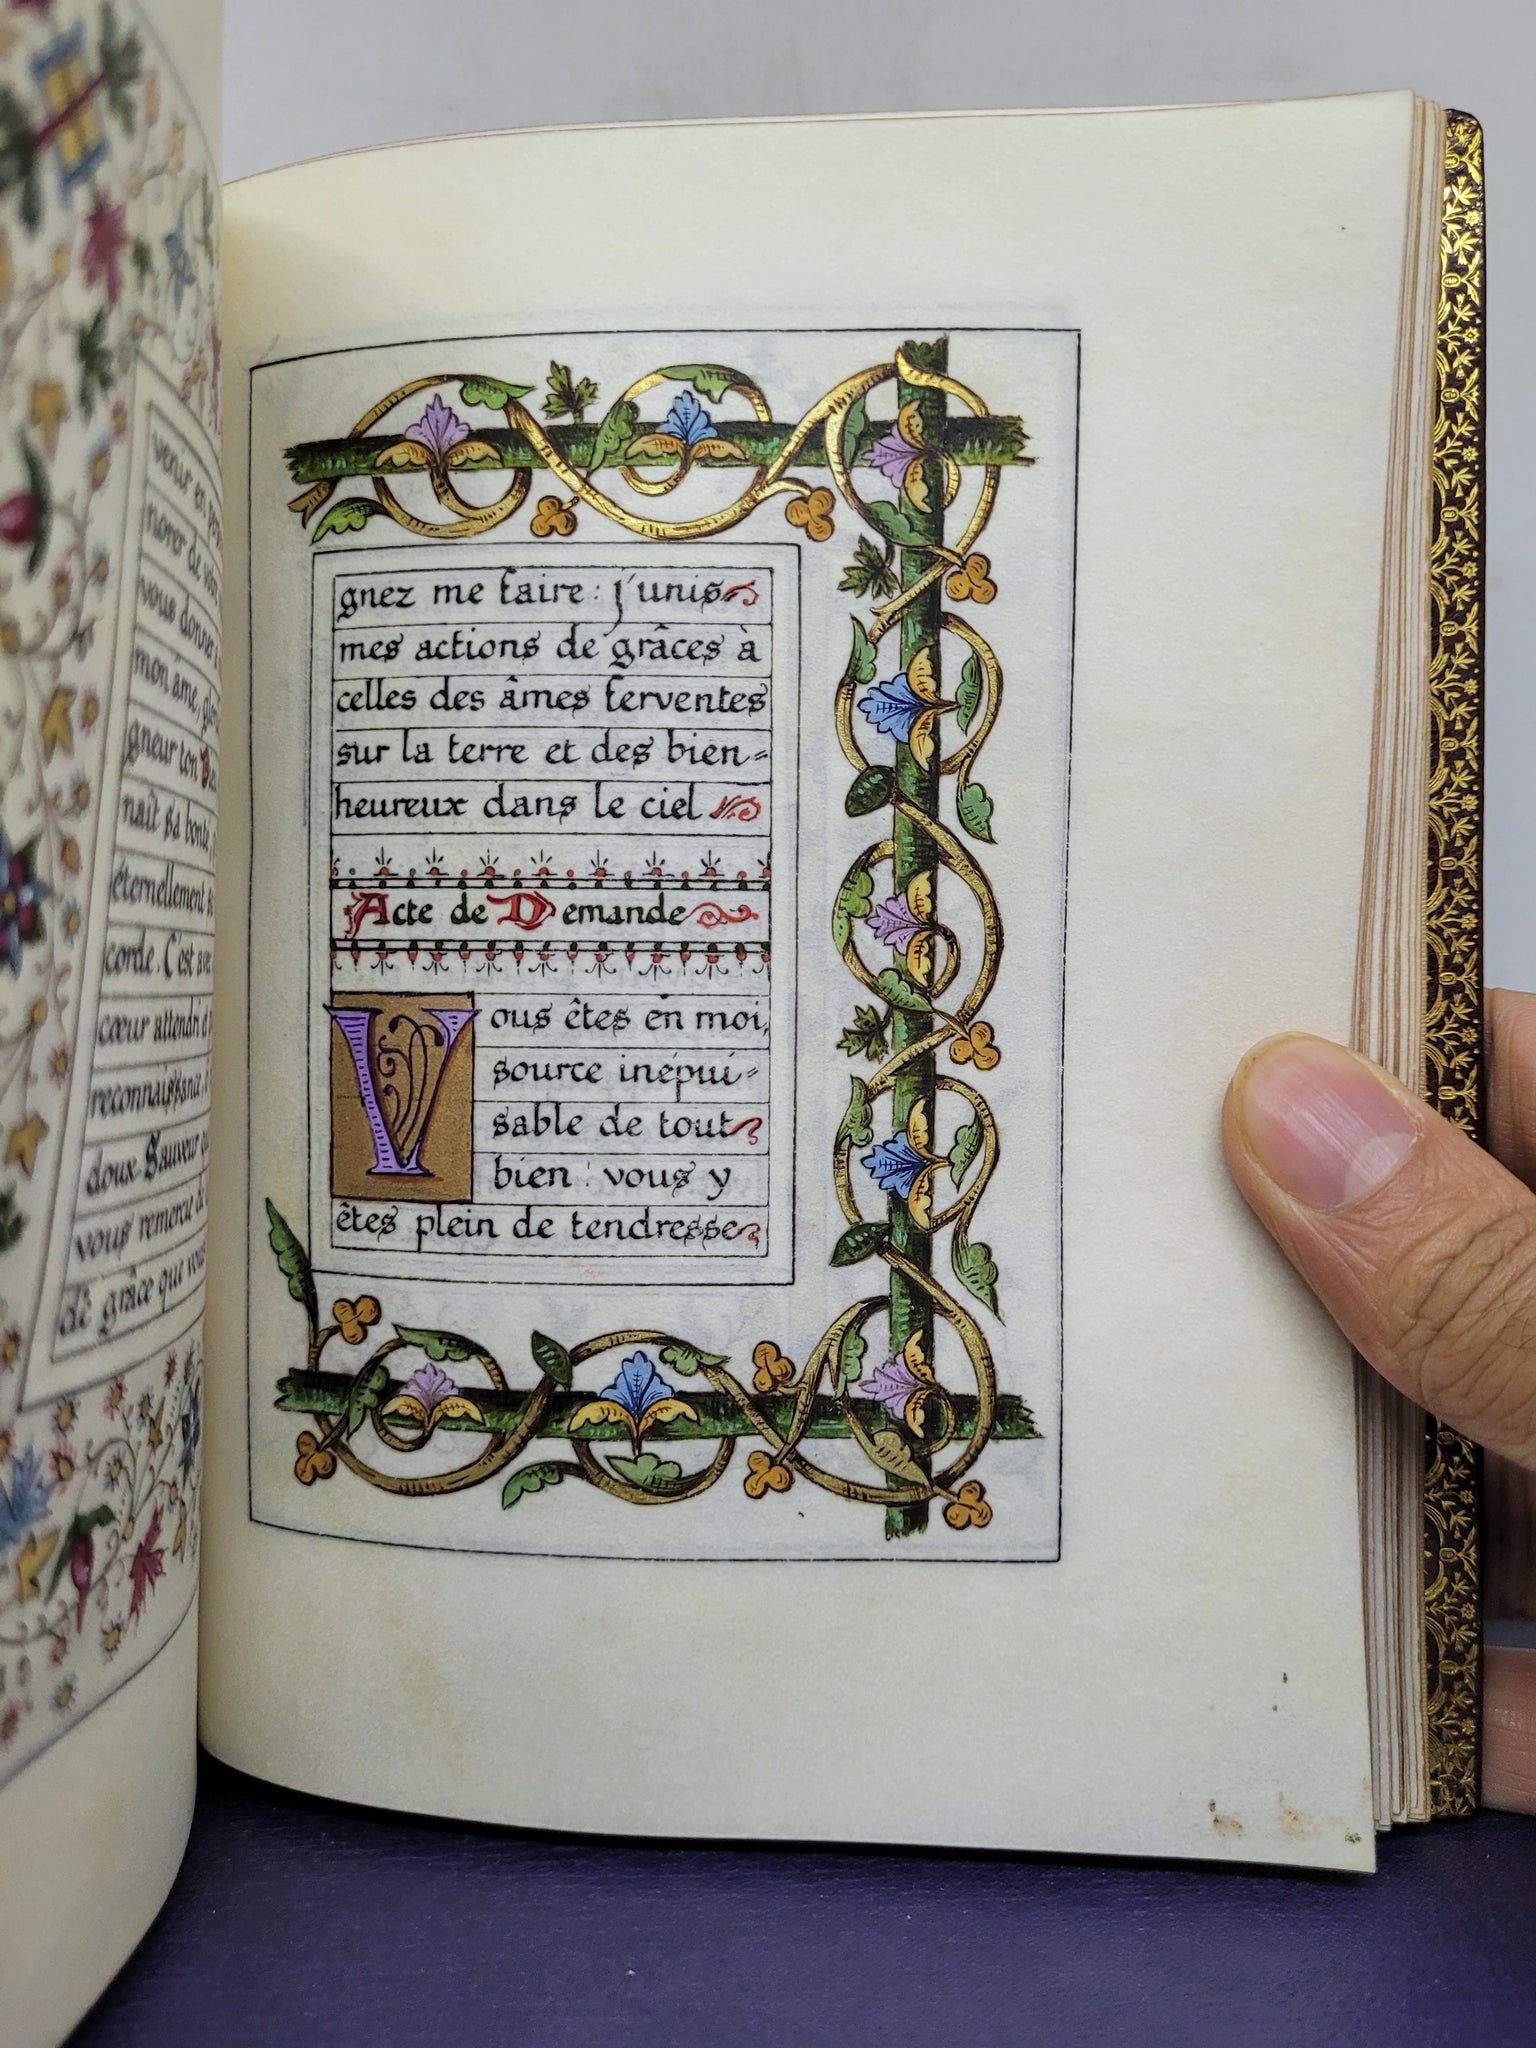 venir en
norer de
vous donner
mon âme,
gneur ton
naît sa bonté,
éternellement
corde. C'est
cœur attendri
reconnaissance
doux Sauveur
vous remercie
de grâce que vous
gnez me faire : j'unis
mes actions de grâces à
celles des âmes ferventes
sur la terre et des bien=
heureux dans le ciel
Acte de Demande
Vous êtes en moi,
source inépui=
sable de tout
bien : vous y
êtes plein de tendresse